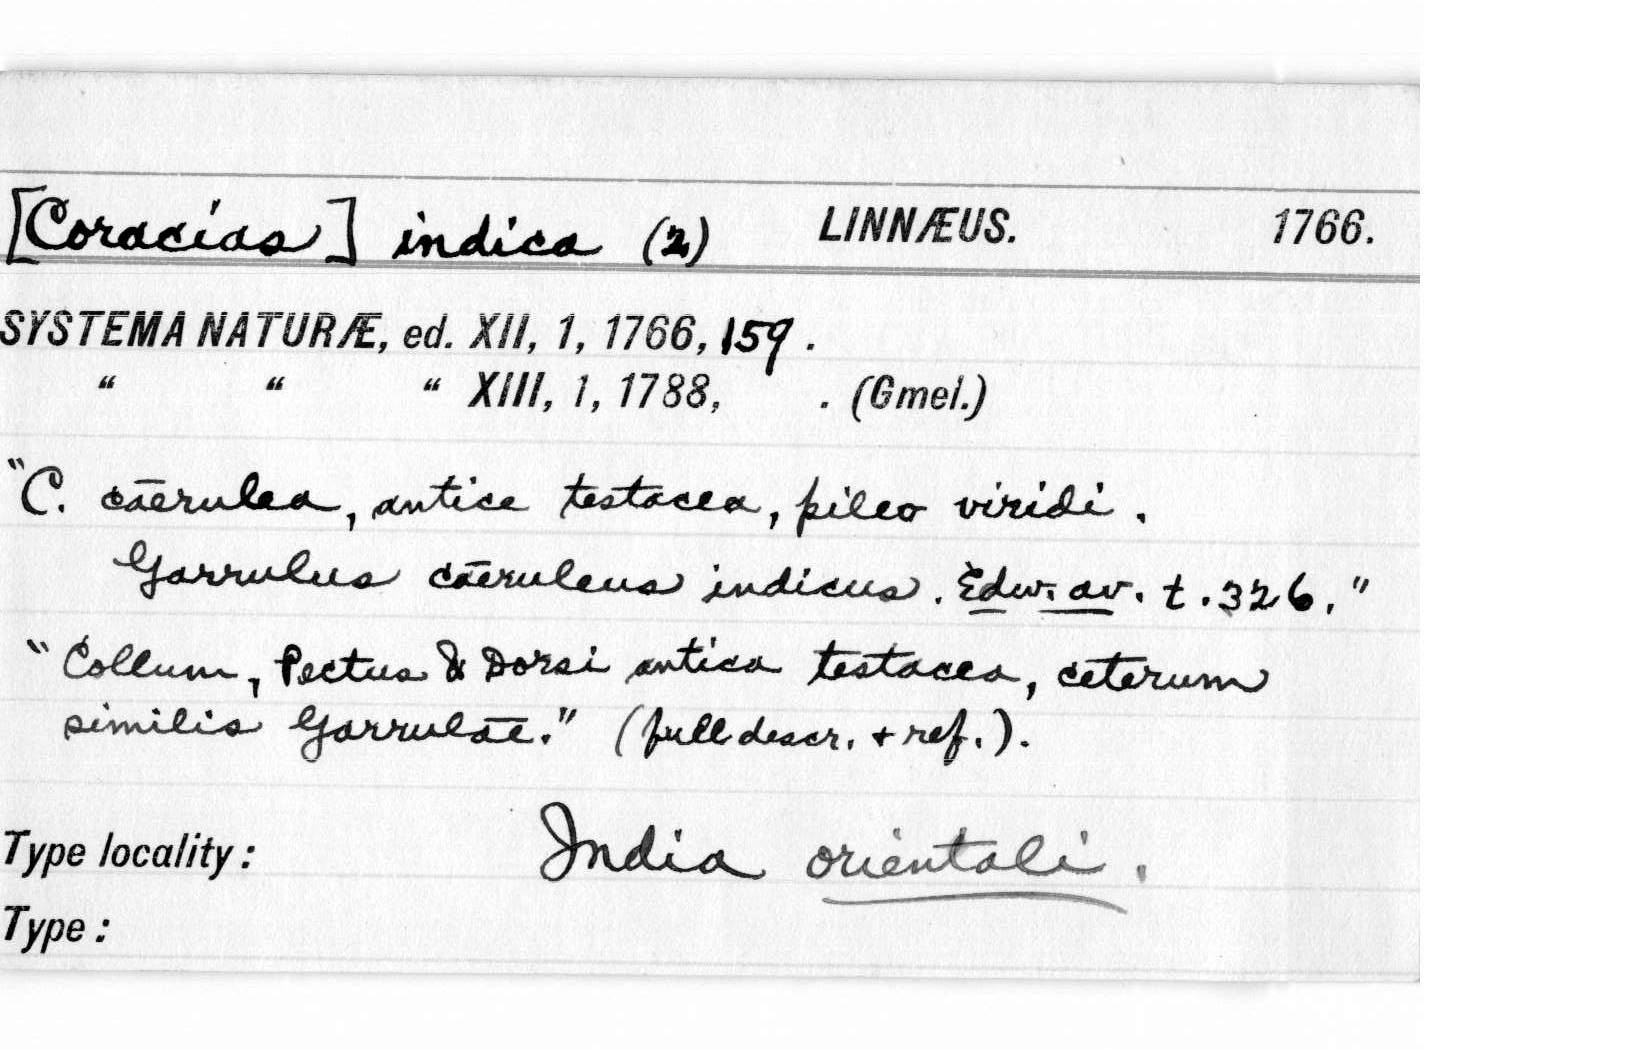 [Coracias] indica (2) LINNÆUS. 1766.
SYSTEMA NATURÆ, ed. XII, 1, 1766, 159.
" " " XIII, 1, 1788, . (Gmel.)
"C. caerulea, antice testacea, pileo viridi.
Garrulus caeruleus indicus. Edw. av. t. 326."
"Collum, Pectus & Dorsi antica testacea, ceterum
similis Garrulae." (full descr. + ref.).
Type locality: India orientali.
Type: